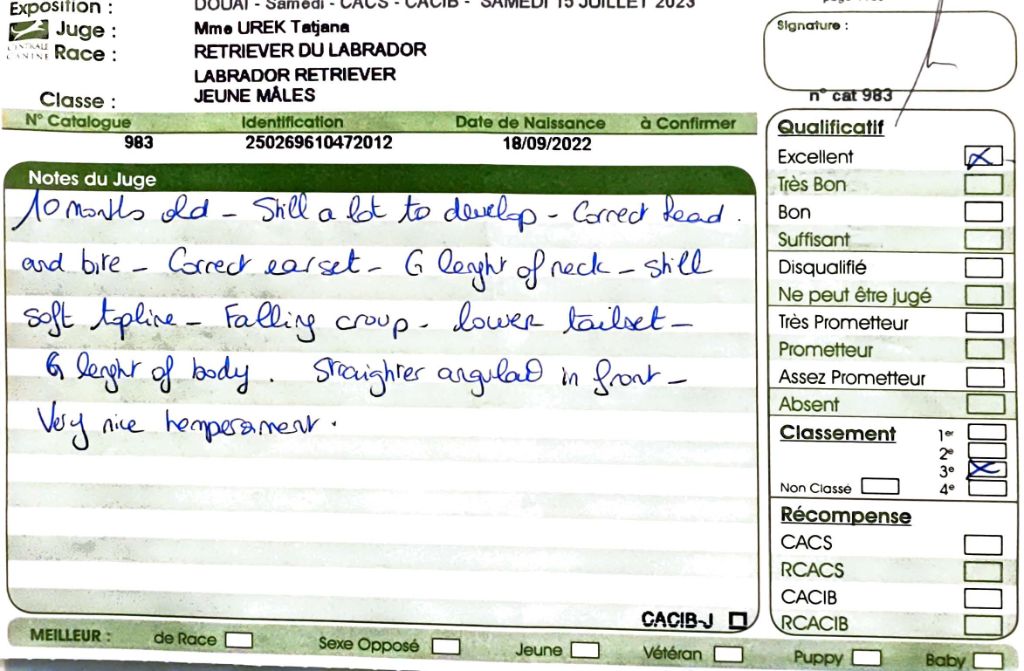 Exposition : DOUAI - Samedi - CACS - CACIB - SAMEDI 15 JUILLET 2023
Juge : Mme UREK Tatjana
CENTRALE CANINE
Race : RETRIEVER DU LABRADOR
LABRADOR RETRIEVER
Classe : JEUNE MÂLES
Signature :
n° cat 983
N° Catalogue Identification Date de Naissance à Confirmer
983 250269610472012 18/09/2022
Notes du Juge
10 months old - Still a lot to develop - Correct head.
and bite - Correct earset - G lenght of neck - still
soft topline - Falling croup - lower tailset -
G lenght of body. Straighter angulad in front -
Very nice temperament.
CACIB-J
Qualificatif
Excellent
Très Bon
Bon
Suffisant
Disqualifié
Ne peut être jugé
Très Prometteur
Prometteur
Assez Prometteur
Absent
Classement 1er
2e
3e
Non Classé 4e
Récompense
CACS
RCACS
CACIB
RCACIB
MEILLEUR : de Race Sexe Opposé Jeune Vétéran Puppy Baby